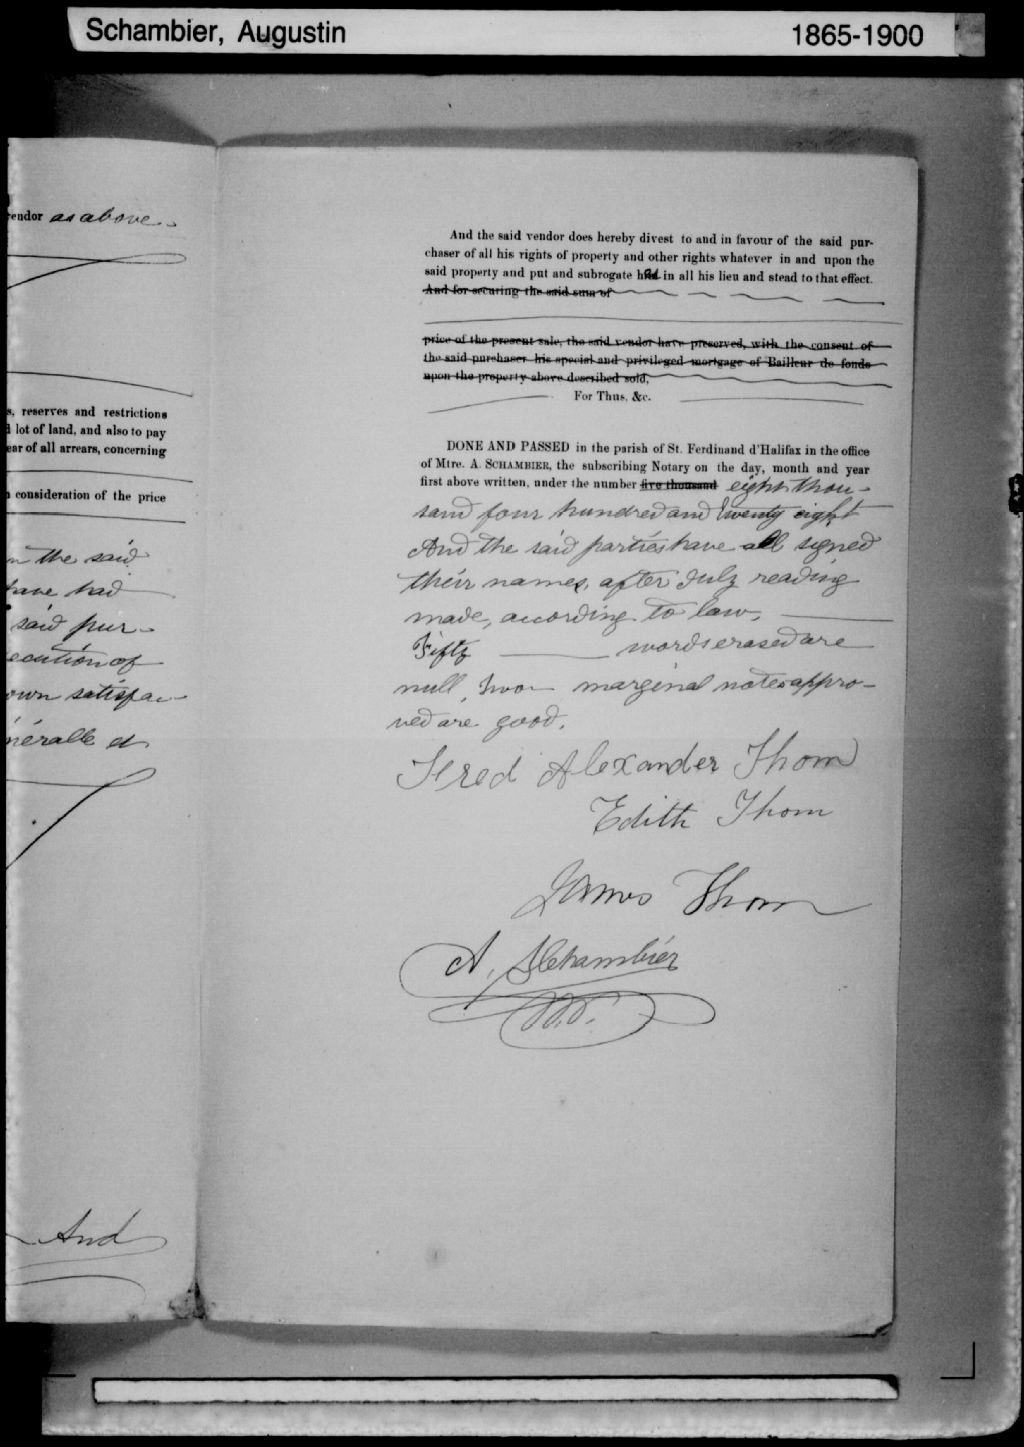 Schambier, Augustin 1865-1900
endor as above
s, reserves and restrictions
lot of land, and also to pay
ear of all arrears, concerning
consideration of the price
the said
have had
said pur-
ecution of
own satisfac-
And
And the said vendor does hereby divest to and in favour of the said pur-
chaser of all his rights of property and other rights whatever in and upon the
said property and put and subrogate in all his lieu and stead to that effect.
And for securing the said sum of
price of the present sale, the said vendor have preserved, with the consent of
the said purchaser his special and privileged mortgage of Bailleur de fonds
upon the property above described sold,
For Thus, &c.
DONE AND PASSED in the parish of St. Ferdinand d'Halifax in the office
of Mtre. A. SCHAMBIER, the subscribing Notary on the day, month and year
first above written, under the number five thousand eight thou-
sand four hundred and twenty eight
And the said parties have all signed
their names, after duly reading
made, acording to law,
Fifty words erased are
null, two marginal notes appro-
ved are good.
Fred Alexander Thom
Edith Thom
James Thom
A. Schambier
N.P.